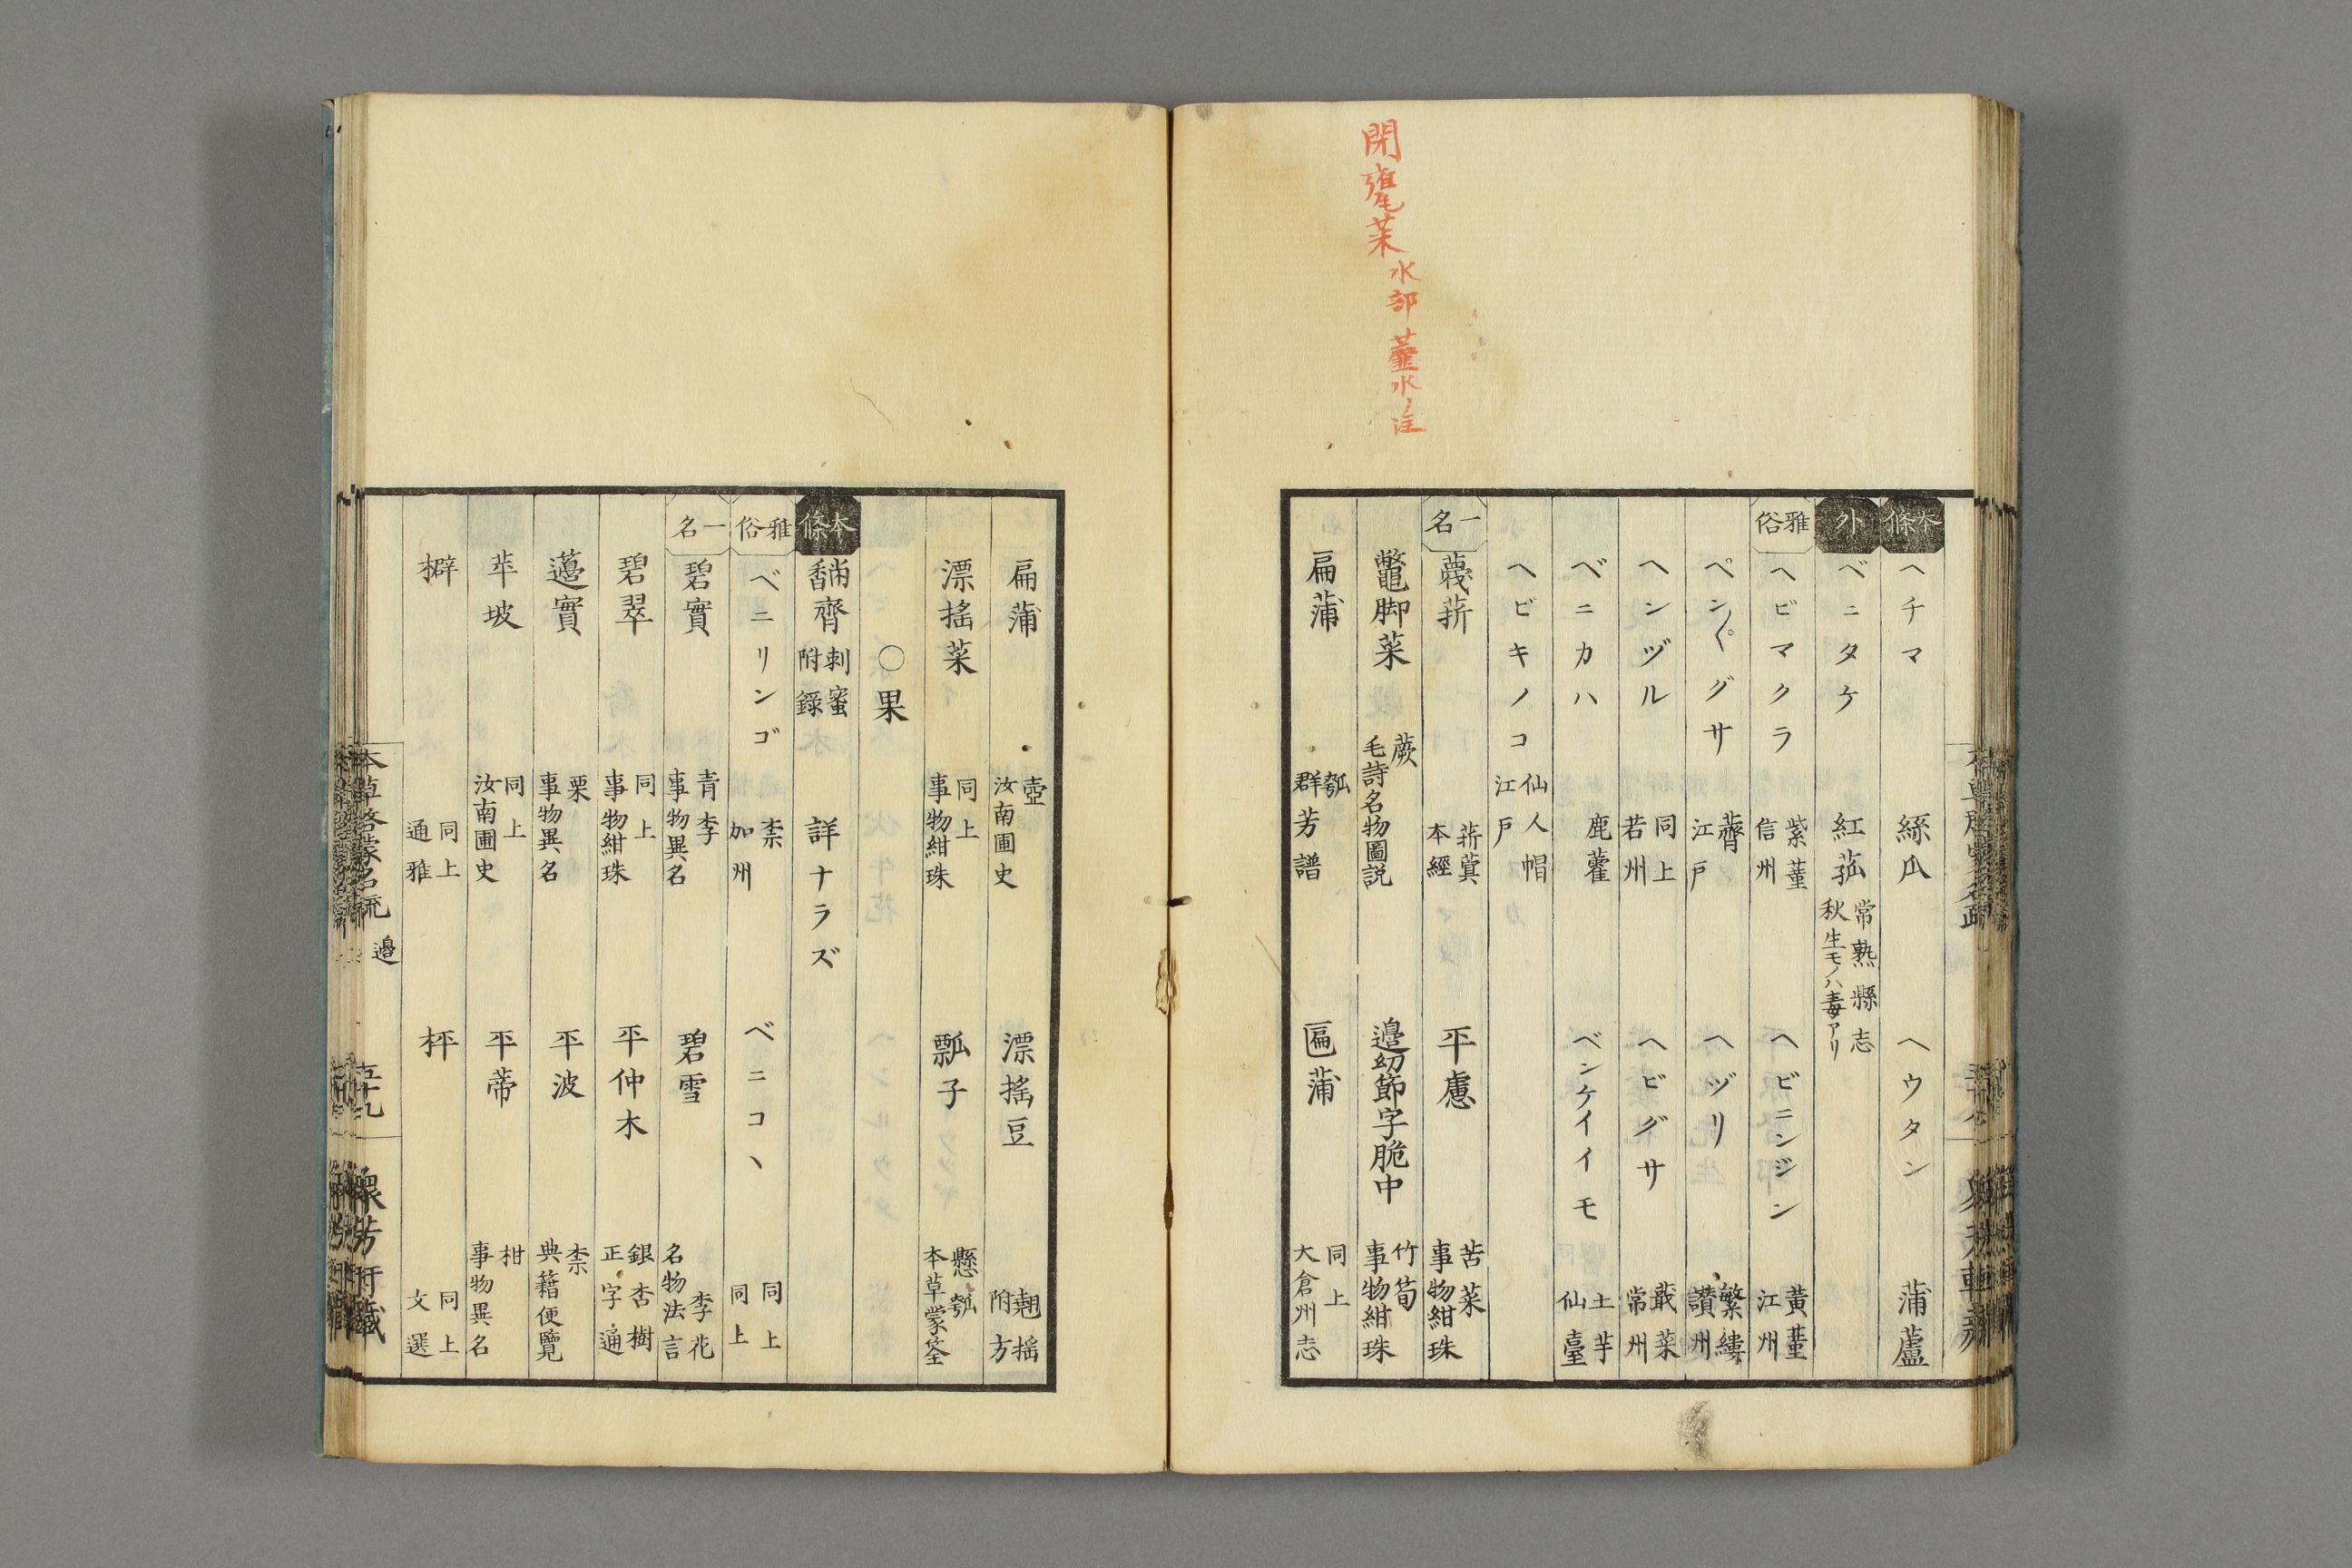 閉甕菜 水部 虀水ノ注
本條 ヘチマ 絲瓜 ヘウタン 蒲蘆
外 ベニタケ 紅菰 常熟縣志 秋生モノハ毒アリ
雅俗 ヘビマクラ 紫菫 信州 ヘビニンジン 黃菫 江州
ペン〳〵グサ 薺 江戸 ヘヅリ 繁縷 讃州
ヘンヅル 同上 若州 ヘビグサ 蕺菜 常州
ベニカハ 鹿藿 ベンケイイモ 土芋 仙臺
ヘビキノコ 仙人帽 江戸
一名 蔑菥 菥蓂 本經 平慮 苦菜 事物紺珠
鼈脚菜 蕨 毛詩名物圖説 邉幼節字脆中 竹筍 事物紺珠
扁蒲 瓠 群芳譜 匾蒲 同上 大倉州志
扁蒲 壺 汝南圃史 漂搖豆 翹搖 附方
漂搖菜 同上 事物紺珠 瓢子 懸瓠 本草蒙筌
〇果
本條 齊 刺蜜 附錄 詳ナラズ
雅俗 ベニリンゴ 柰 加州 ベニコヽ 同上 同上
一名 碧實 青李 事物異名 碧雪 李花 名物法言
碧翠 同上 事物紺珠 平仲木 銀杏樹 正字通
邉實 栗 事物異名 平波 柰 典籍便覽
坡 同上 汝南圃史 平蒂 柑 事物異名
檘 同上 通雅 枰 同上 文選
本草啓蒙名疏 邉 五十九 懷芳軒藏